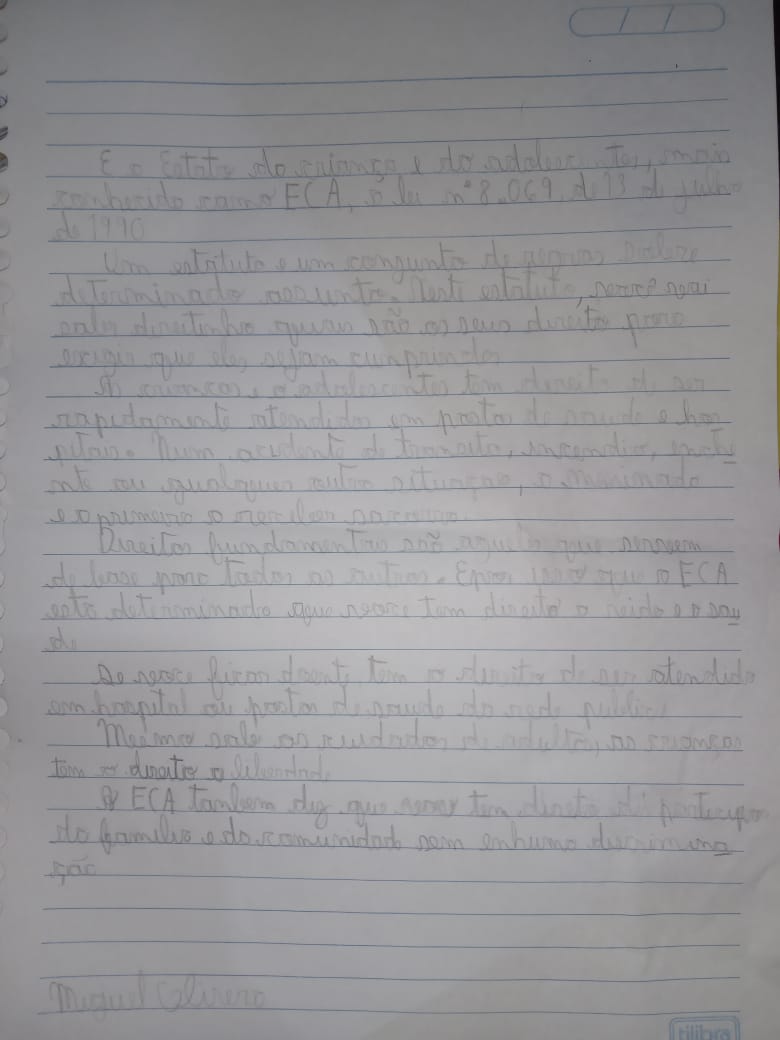 E o Estato da criança e do adolescentes, mais
conhecido como ECA, a lei nº 8.069, de 13 de julho
de 1990
Um estatuto e um congunto de regras sobre
determinado assunto. Neste estatuto, você vai
saber direitinho quais são os seus direito para
exigir que eles sejam cumprindos
As crianças e o adolescentes tem direito de ser
rapidamente atendidos em postos de saude e hos
pitais. Num acidente de transito, incendio, enche
nte ou qualquer outra situação, o meninado
e o primeiro a receber socorro.
Direitos fundamentais são aqueles que servem
de base para todos os outros. E por isso que o ECA
esta determinado que voce tem direito a vida e a sau
de
Se voce ficar doente tem o direito de ser atendido
em hospital ou postos de saude da rede publica
Mesmo sob os cuidados de adultos, as crianças
tem o direito a liberdade
O ECA tambem diz que voce tem direito de participar
da familia e da comunidade sem enhuma discrimina
ção
Miguel Oliveira
tilibra